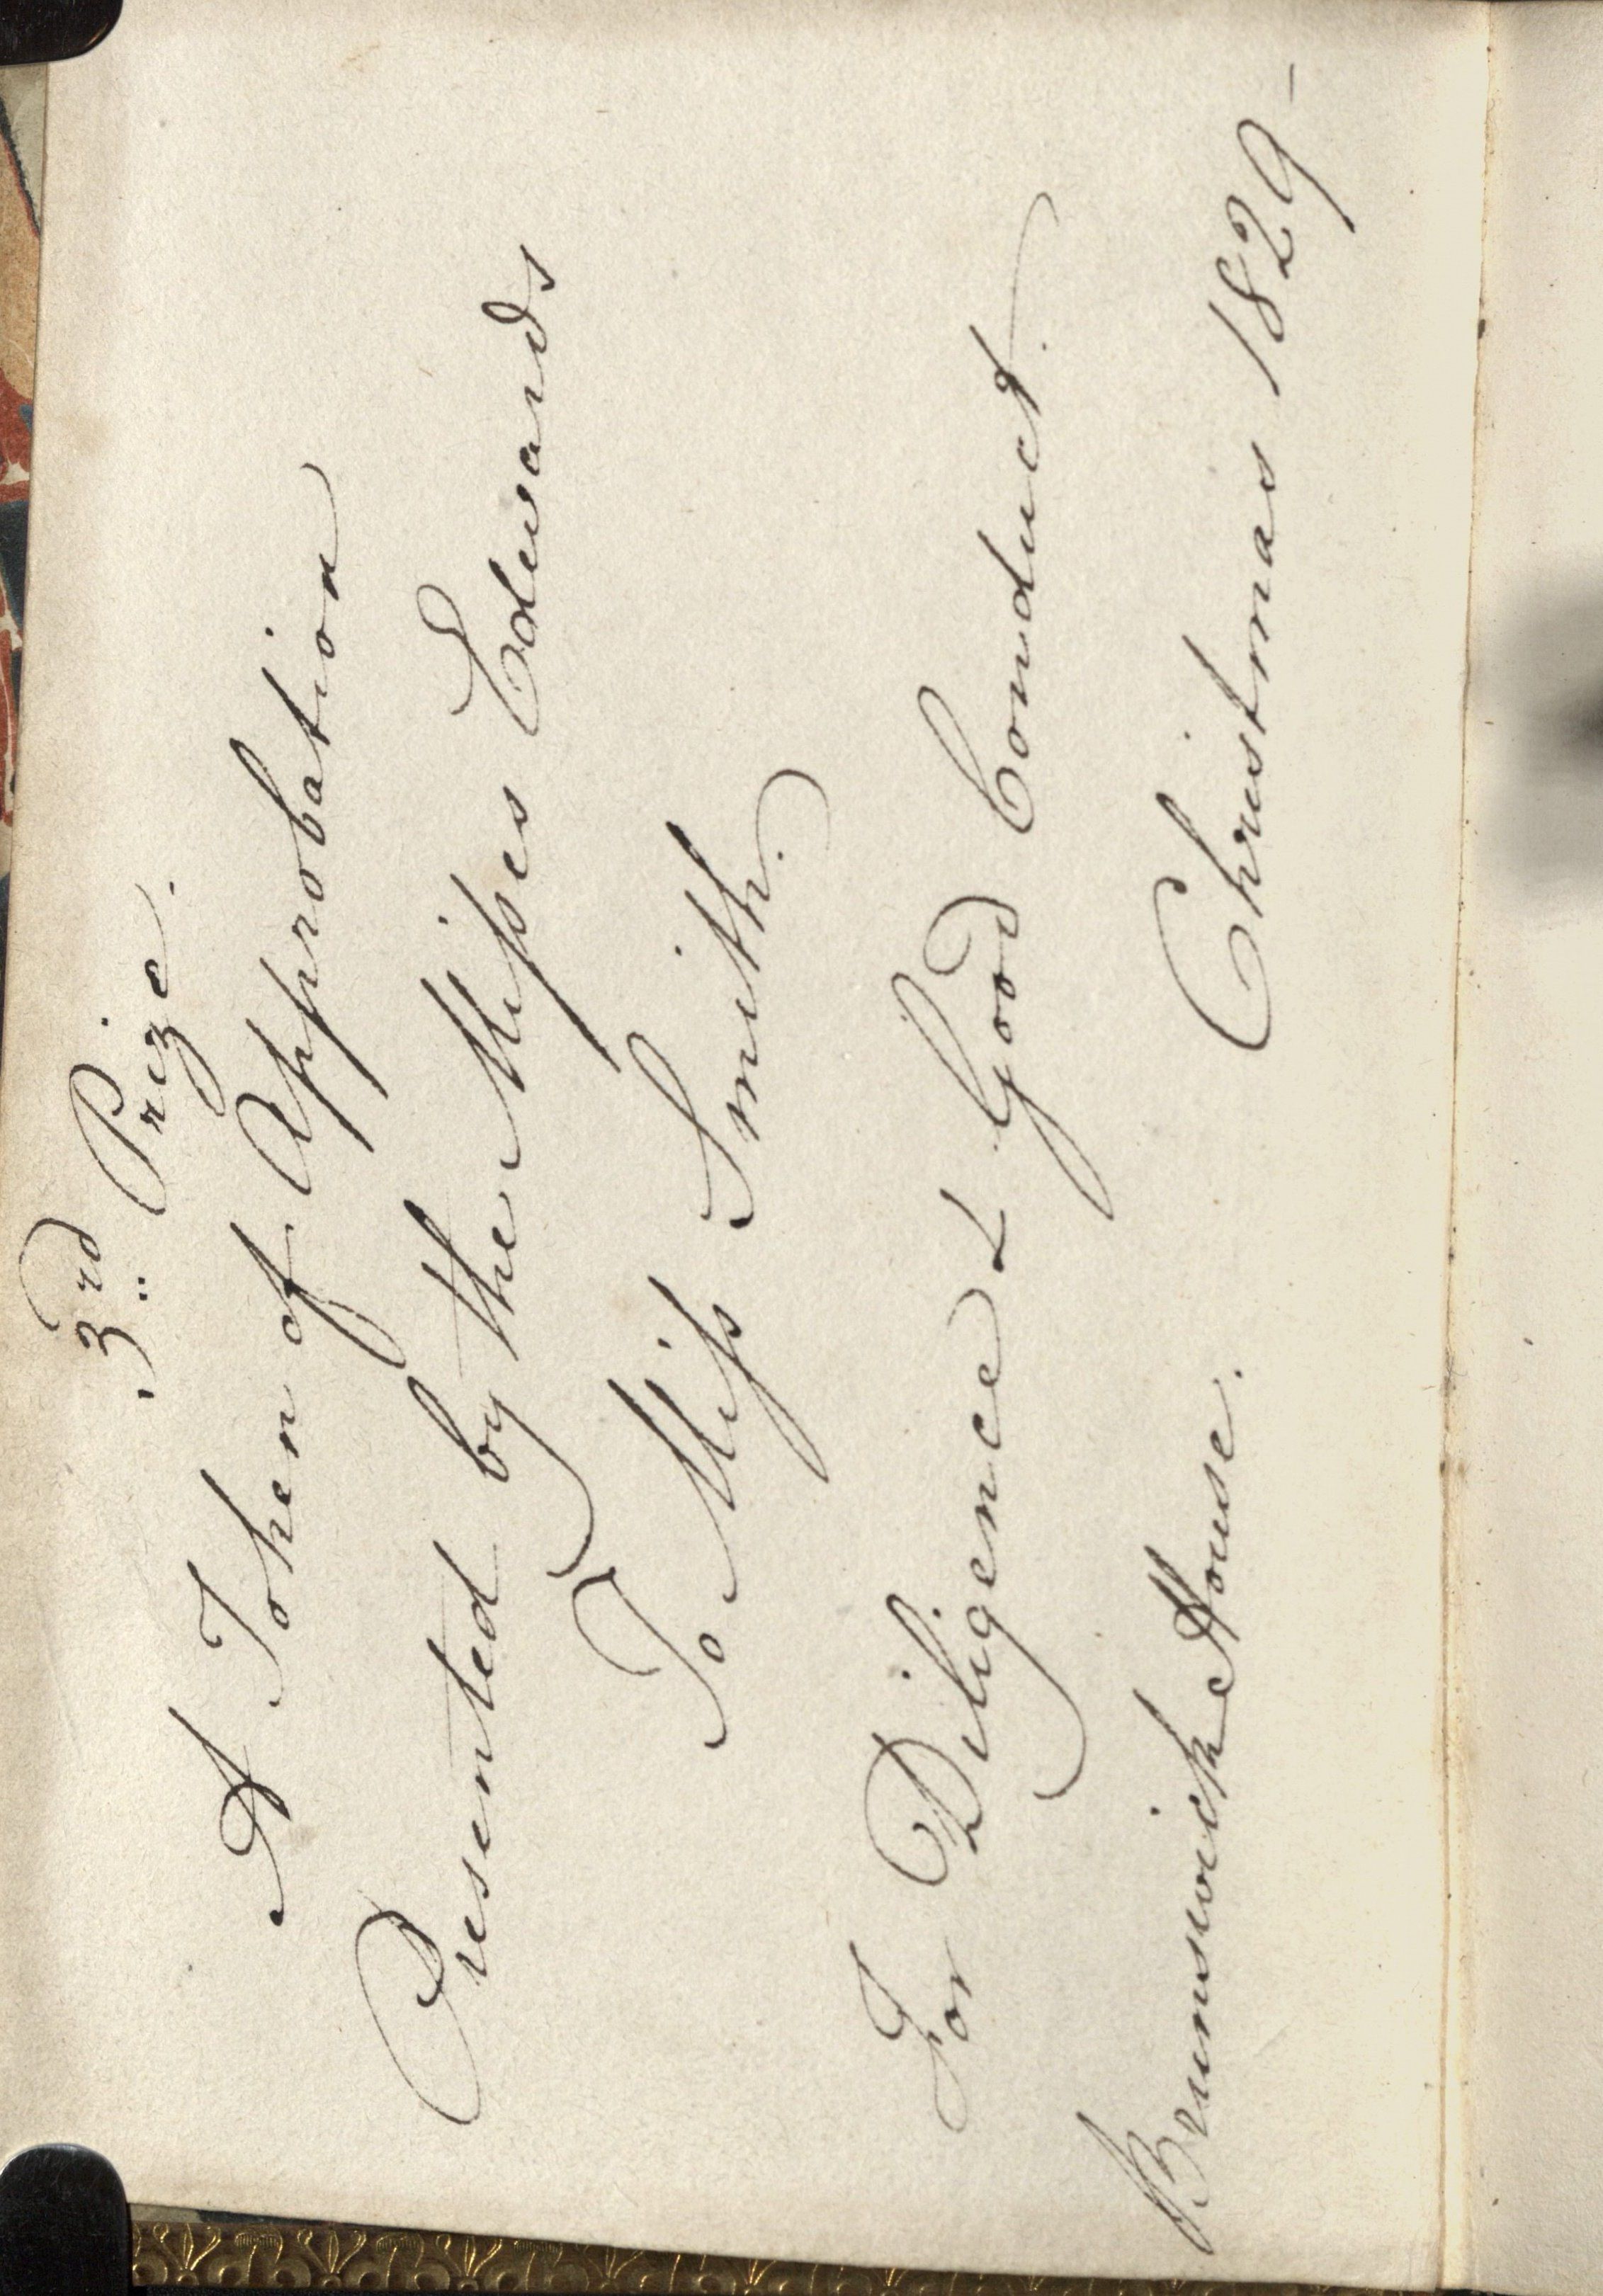 3rd Prize.
A Token of Approbation
Presented by the Miſses Edwards
To Miſs Smith.
For Diligence & Good Conduct.
Brunswick House.
Christmas 1829-